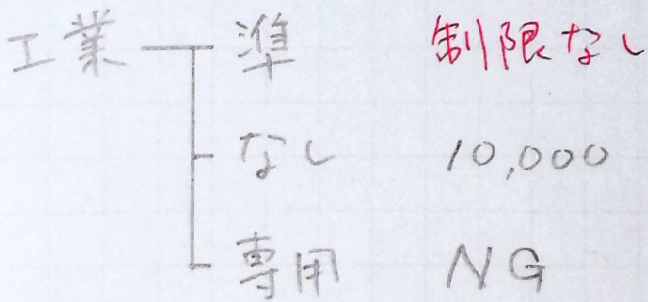 工業 準 制限なし
なし 10,000
専用 NG